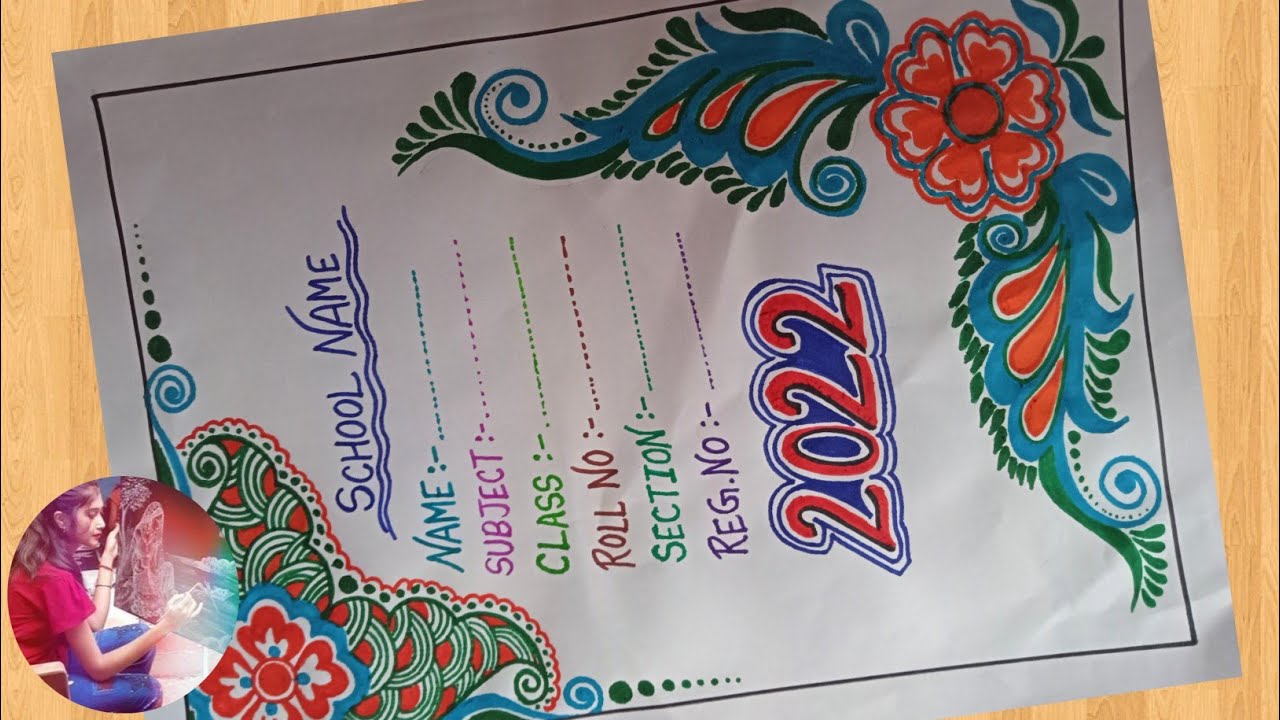 SCHOOL NAME
NAME:-
SUBJECT:-
CLASS:-
ROLL NO:-
SECTION:-
REG.NO:-
2022